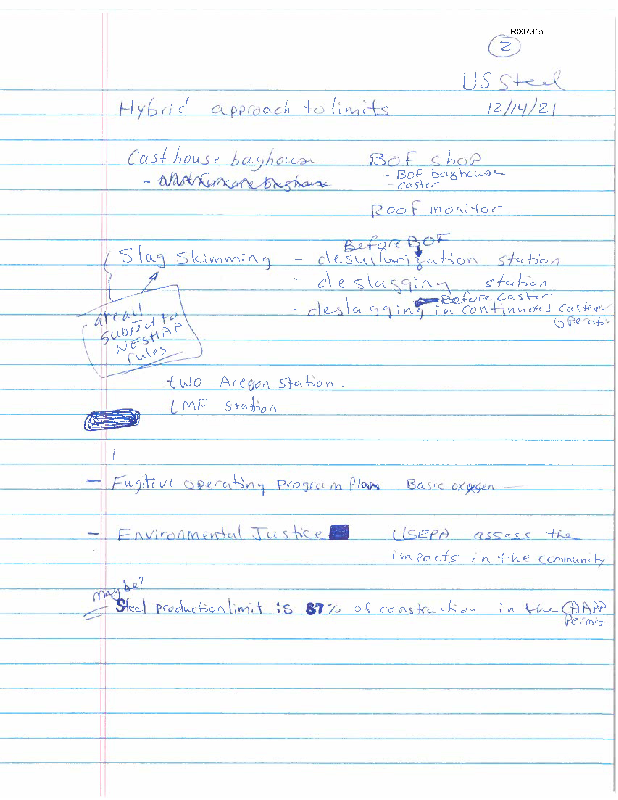 R007315
2
US Steel
Hybrid approach to limits 12/14/21
Casthouse baghouse BOF shop
- BOF baghouse
- caster
Roof monitor
Before BOF
Slag Skimming - desulfurization station
- deslagging station
Before Caster
- deslagging in continuous caster
operation
are all
subject to
NESHAP
rules
two Aregon station.
LMF Station
- Fugitive operating program Plan Basic oxygen —
- Environmental Justice USEPA assess the
impacts in the community
maybe?
Steel production limit is 87% of construction in the CAAPP
Permit